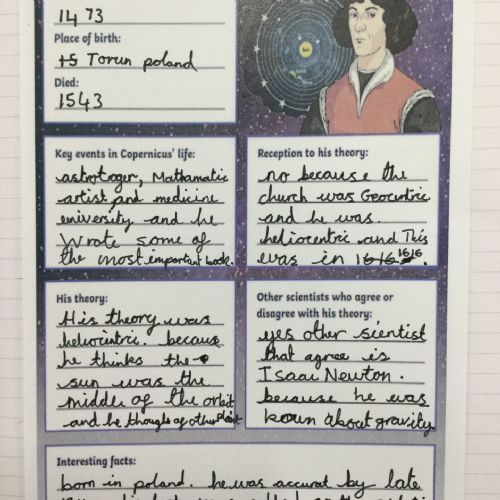 1473
Place of birth:
Torun poland
Died:
1543
Key events in Copernicus' life:
astrotroger, Mathamatic
artist and medicine
eniversity and he
wrote some of
the most important book.
Reception to his theory:
no because the
church was Geocentric
and he was.
heliocentric and This
was in 1616 1616.
His theory:
His theory was
heliocintric. because
he thinks the
sun was the
middle of the orbit
and he thought of other Planit
Other scientists who agree or
disagree with his theory:
yes other sientist
that agree is
Isaac Newton.
because he was
koun about gravity.
Interesting facts:
born in poland. he was accurat by late